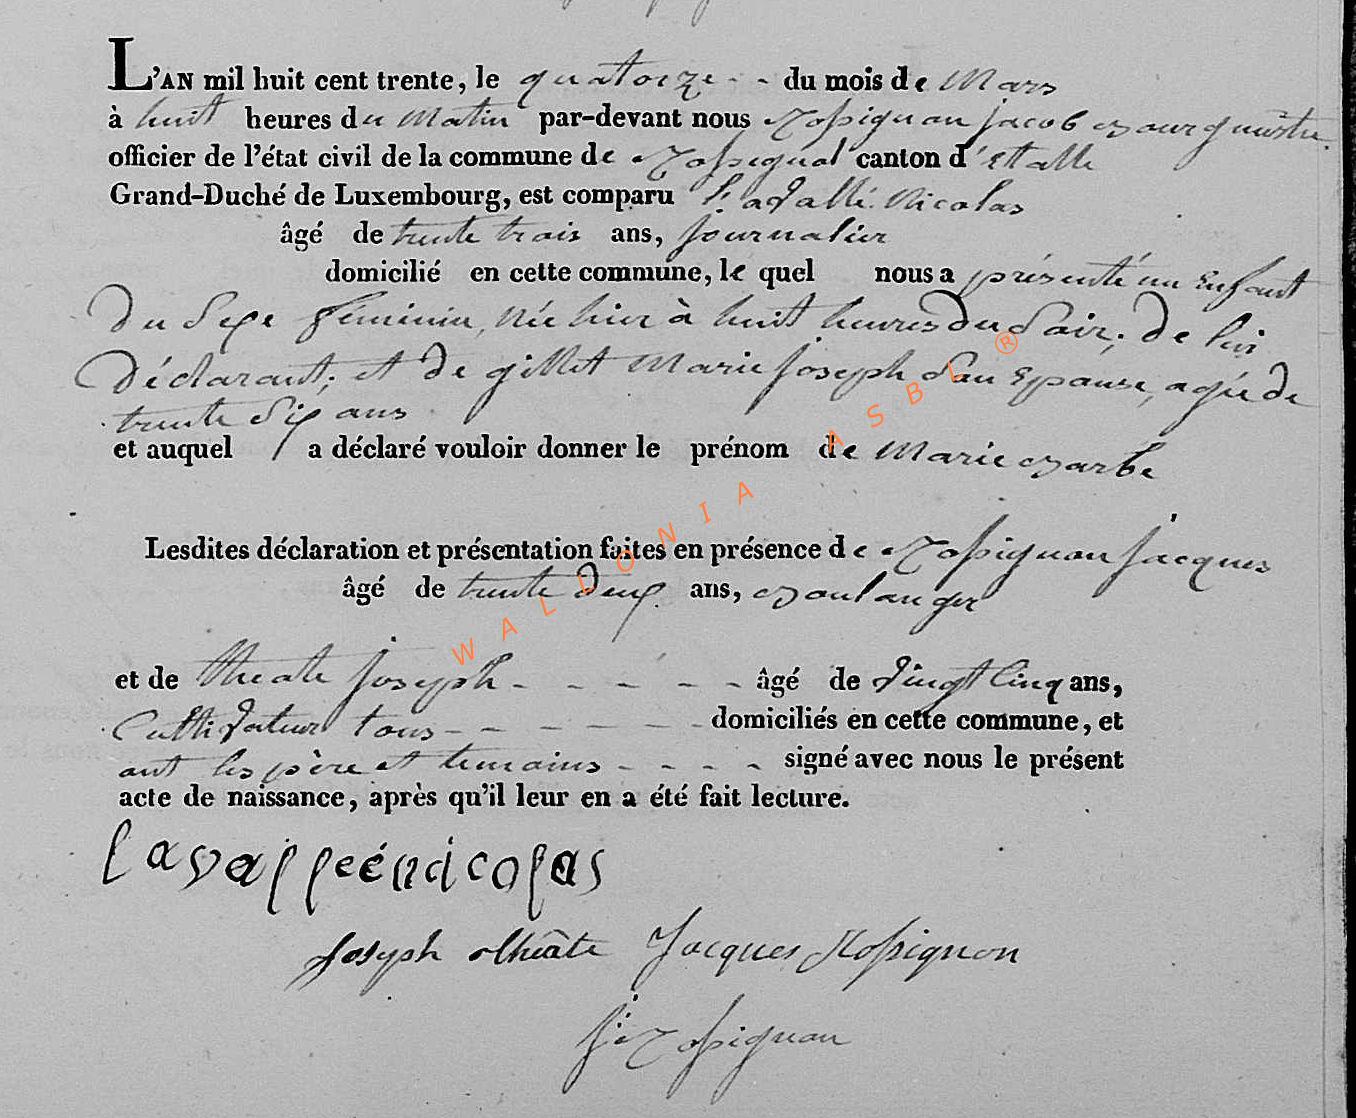 L'AN mil huit cent trente, le quatorze - - du mois de Mars
à huit heures du Matin par-devant nous Rossignon jacob Bourguemêstre
officier de l'état civil de la commune de Rossignol canton d'Etalle
Grand-Duché de Luxembourg, est comparu Lavallé Nicolas
âgé de trente trois ans, journalier
domicilié en cette commune, le quel nous a présenté un Enfant
Du Sexe féminin, Née hier à huit heures du Soir; de lui
Déclarant; et de gillet Marie joseph Son Epouse, agée de
trente Six ans
et auquel / a déclaré vouloir donner le prénom de Marie Barbe
Lesdites déclaration et présentation faites en présence de Rossignon jacques
âgé de trente deux ans, Boulanger
et de theate joseph - - - - - - âgé de Vingt Cinq ans,
Cultivateur tous - - - - - - domiciliés en cette commune, et
ont les père et temoins - - - - signé avec nous le présent
acte de naissance, après qu'il leur en a été fait lecture.
lavalleé nicolas
joseph theâte Jacques Rossignon
j: Rossignon
WALLONIA ASBL ®